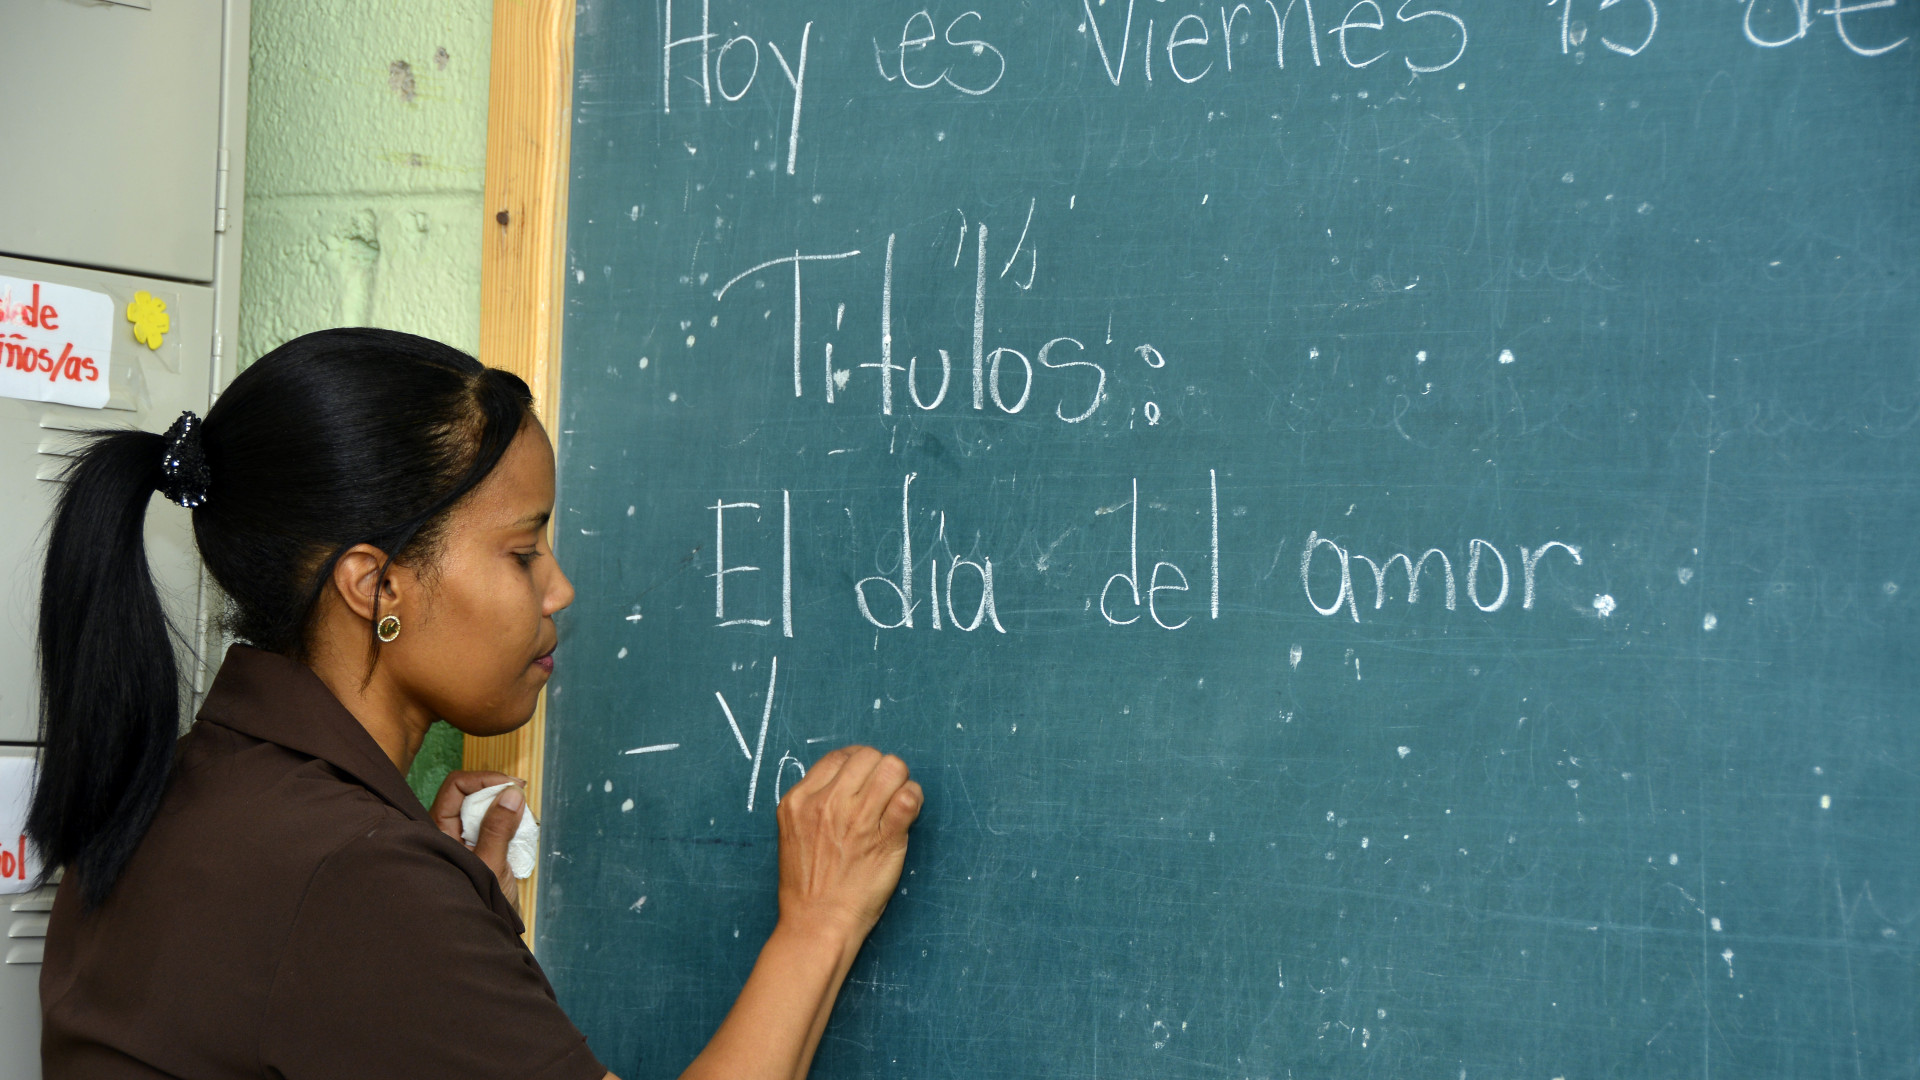 Hoy es Viernes 15 de
Títulos:
El día del amor.
- Yo
de
iños/as
ol